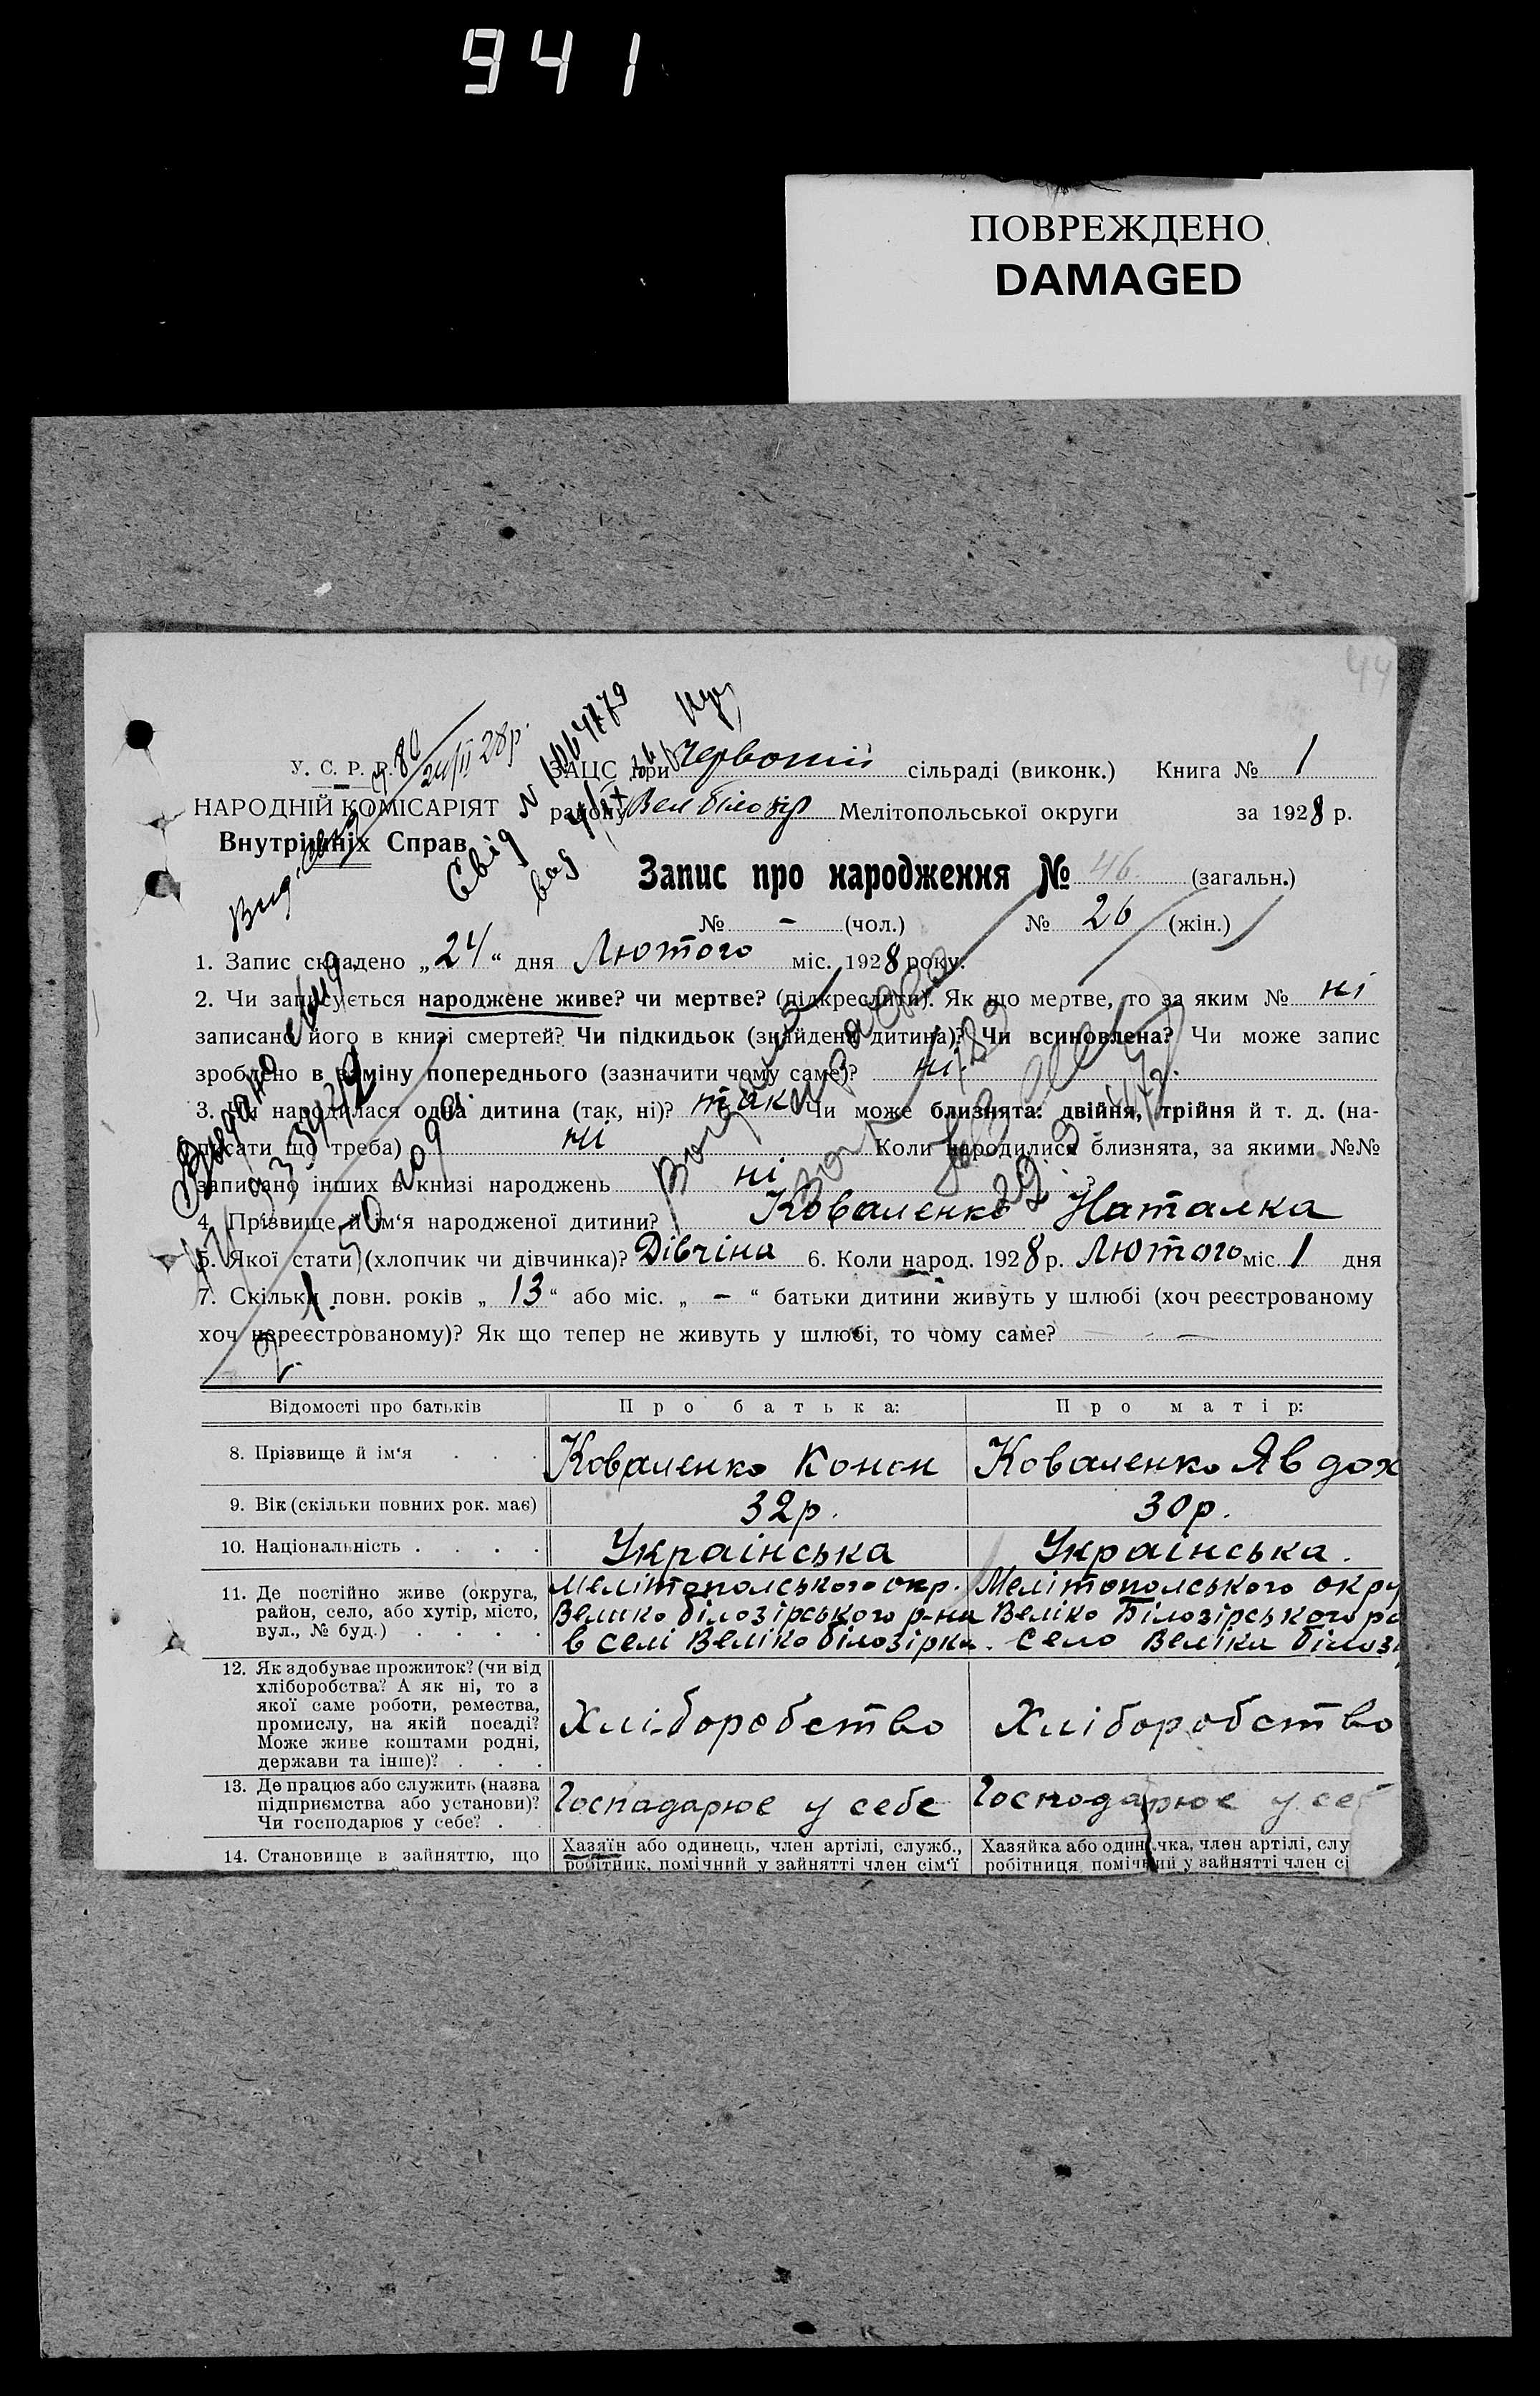 941
ПОВРЕЖДЕНО
DAMAGED
44
У. С. Р. Р.
НАРОДНІЙ КОМІСАРІЯТ
Внутрішніх Справ
ЗАЦС при Червоній сільраді (виконк.) Книга № 1
району Вел Білозір Мелітопольської округи за 1928 р.
24/II 28р.
Свід N
Запис про народження № 46 (загальн.)
№ - (чол.) № 26 (жін.)
1. Запис складено „24“ дня Лютого міс. 1928 року.
2. Чи записується народжене живе? чи мертве? (підкреслити). Як що мертве, то за яким № ні
записано його в книзі смертей? Чи підкидьок (знайдена дитина)? Чи всиновлена? Чи може запис
зроблено в заміну попереднього (зазначити чому саме)? ні.
3. Чи народилася одна дитина (так, ні)? так Чи може близнята: двійня, трійня й т. д. (на-
писати що треба) ні Коли народилися близнята, за якими №№
записано інших в книзі народжень ні
4. Прізвище й ім‘я народженої дитини? Коваленко Наталка
5. Якої стати (хлопчик чи дівчинка)? Дівчіна 6. Коли народ. 1928 р. Лютого міс. 1 дня
7. Скільки повн. років „ 13 “ або міс. „ - “ батьки дитини живуть у шлюбі (хоч реєстрованому
хоч нереєстрованому)? Як що тепер не живуть у шлюбі, то чому саме? —
Відомості про батьків Про батька: Про матір:
8. Прізвище й ім‘я Коваленко Конон Коваленко Явдох
9. Вік (скільки повних рок. має) 32р. 30р.
10. Національність Українська Українська.
11. Де постійно живе (округа,
район, село, або хутір, місто,
вул., № буд.)
Мелітополського окр.
Велико білозірського р-на
в селі Веліко білозірка.
Мелітополського окру
Веліко Білозірського ра
село Веліка білозі
12. Як здобуває прожиток? (чи від
хліборобства? А як ні, то з
якої саме роботи, ремества,
промислу, на якій посаді?
Може живе коштами родні,
держави та інше)?
Хліборобство Хліборобство
13. Де працює або служить (назва
підприємства або установи)?
Чи господарює у себе?
Господарює у себе Господарює у себ
14. Становище в зайняттю, що
Хазяїн або одинець, член артілі, служб.,
робітник, помічний у зайнятті член сім‘ї
Хазяйка або одиначка, член артілі, слу
робітниця помічний у зайнятті член сі